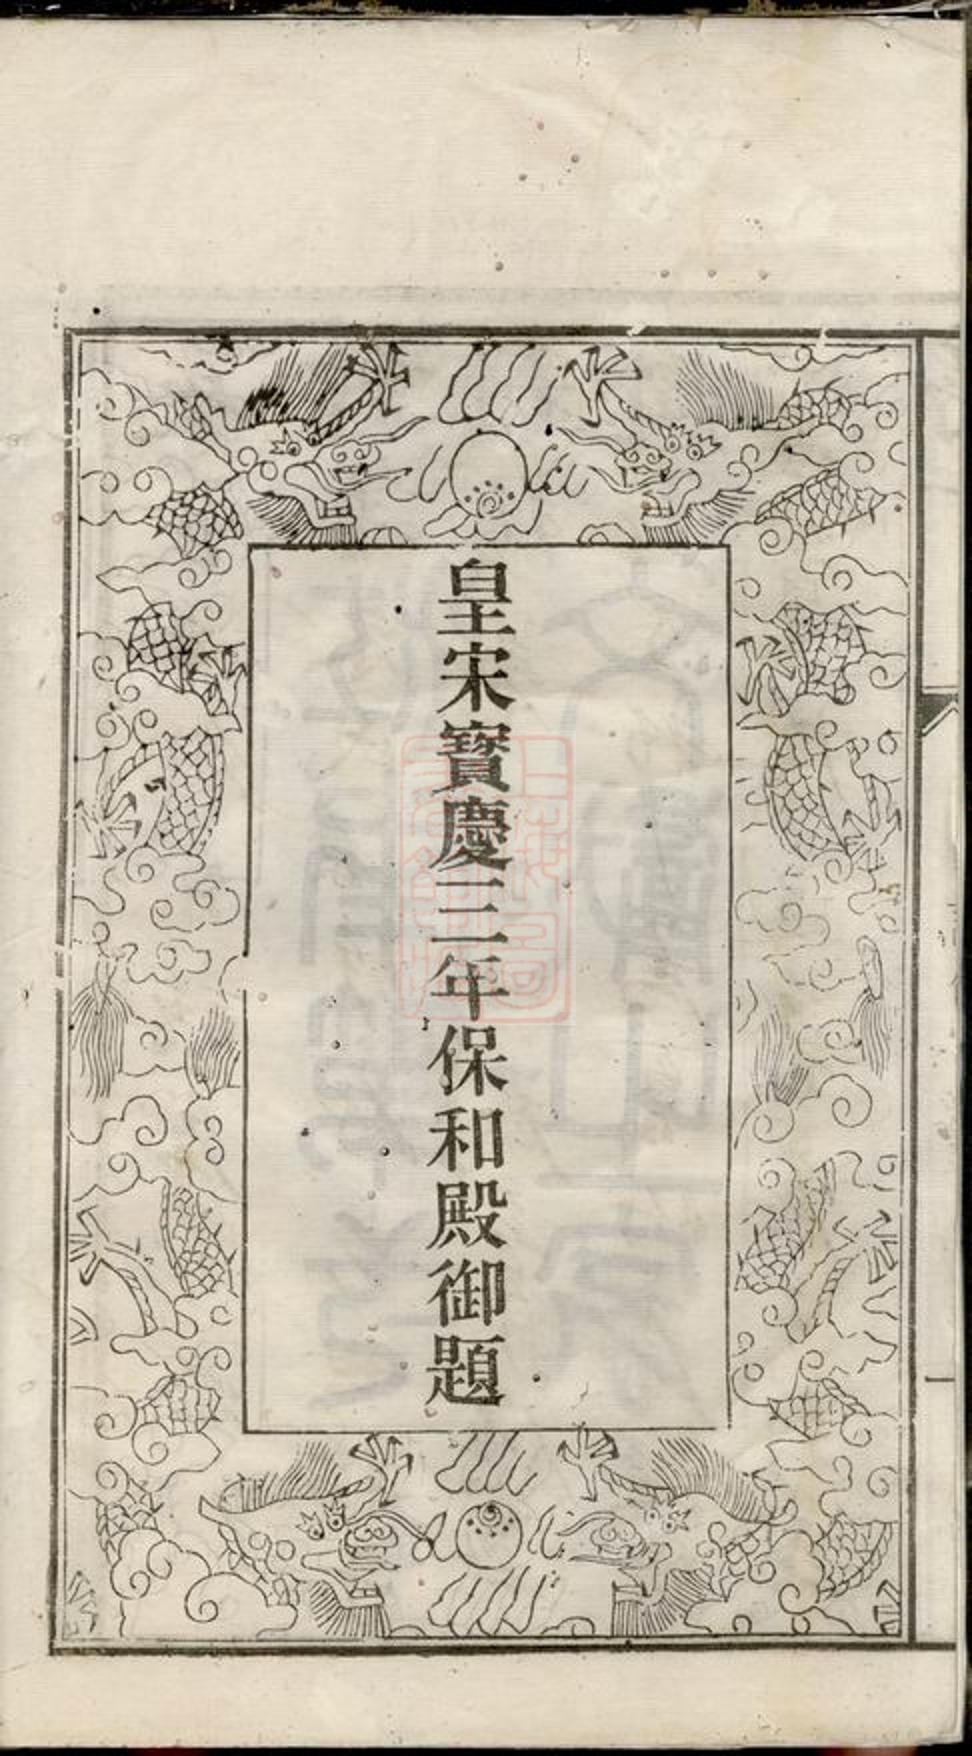 皇宋寶慶三年保和殿御題